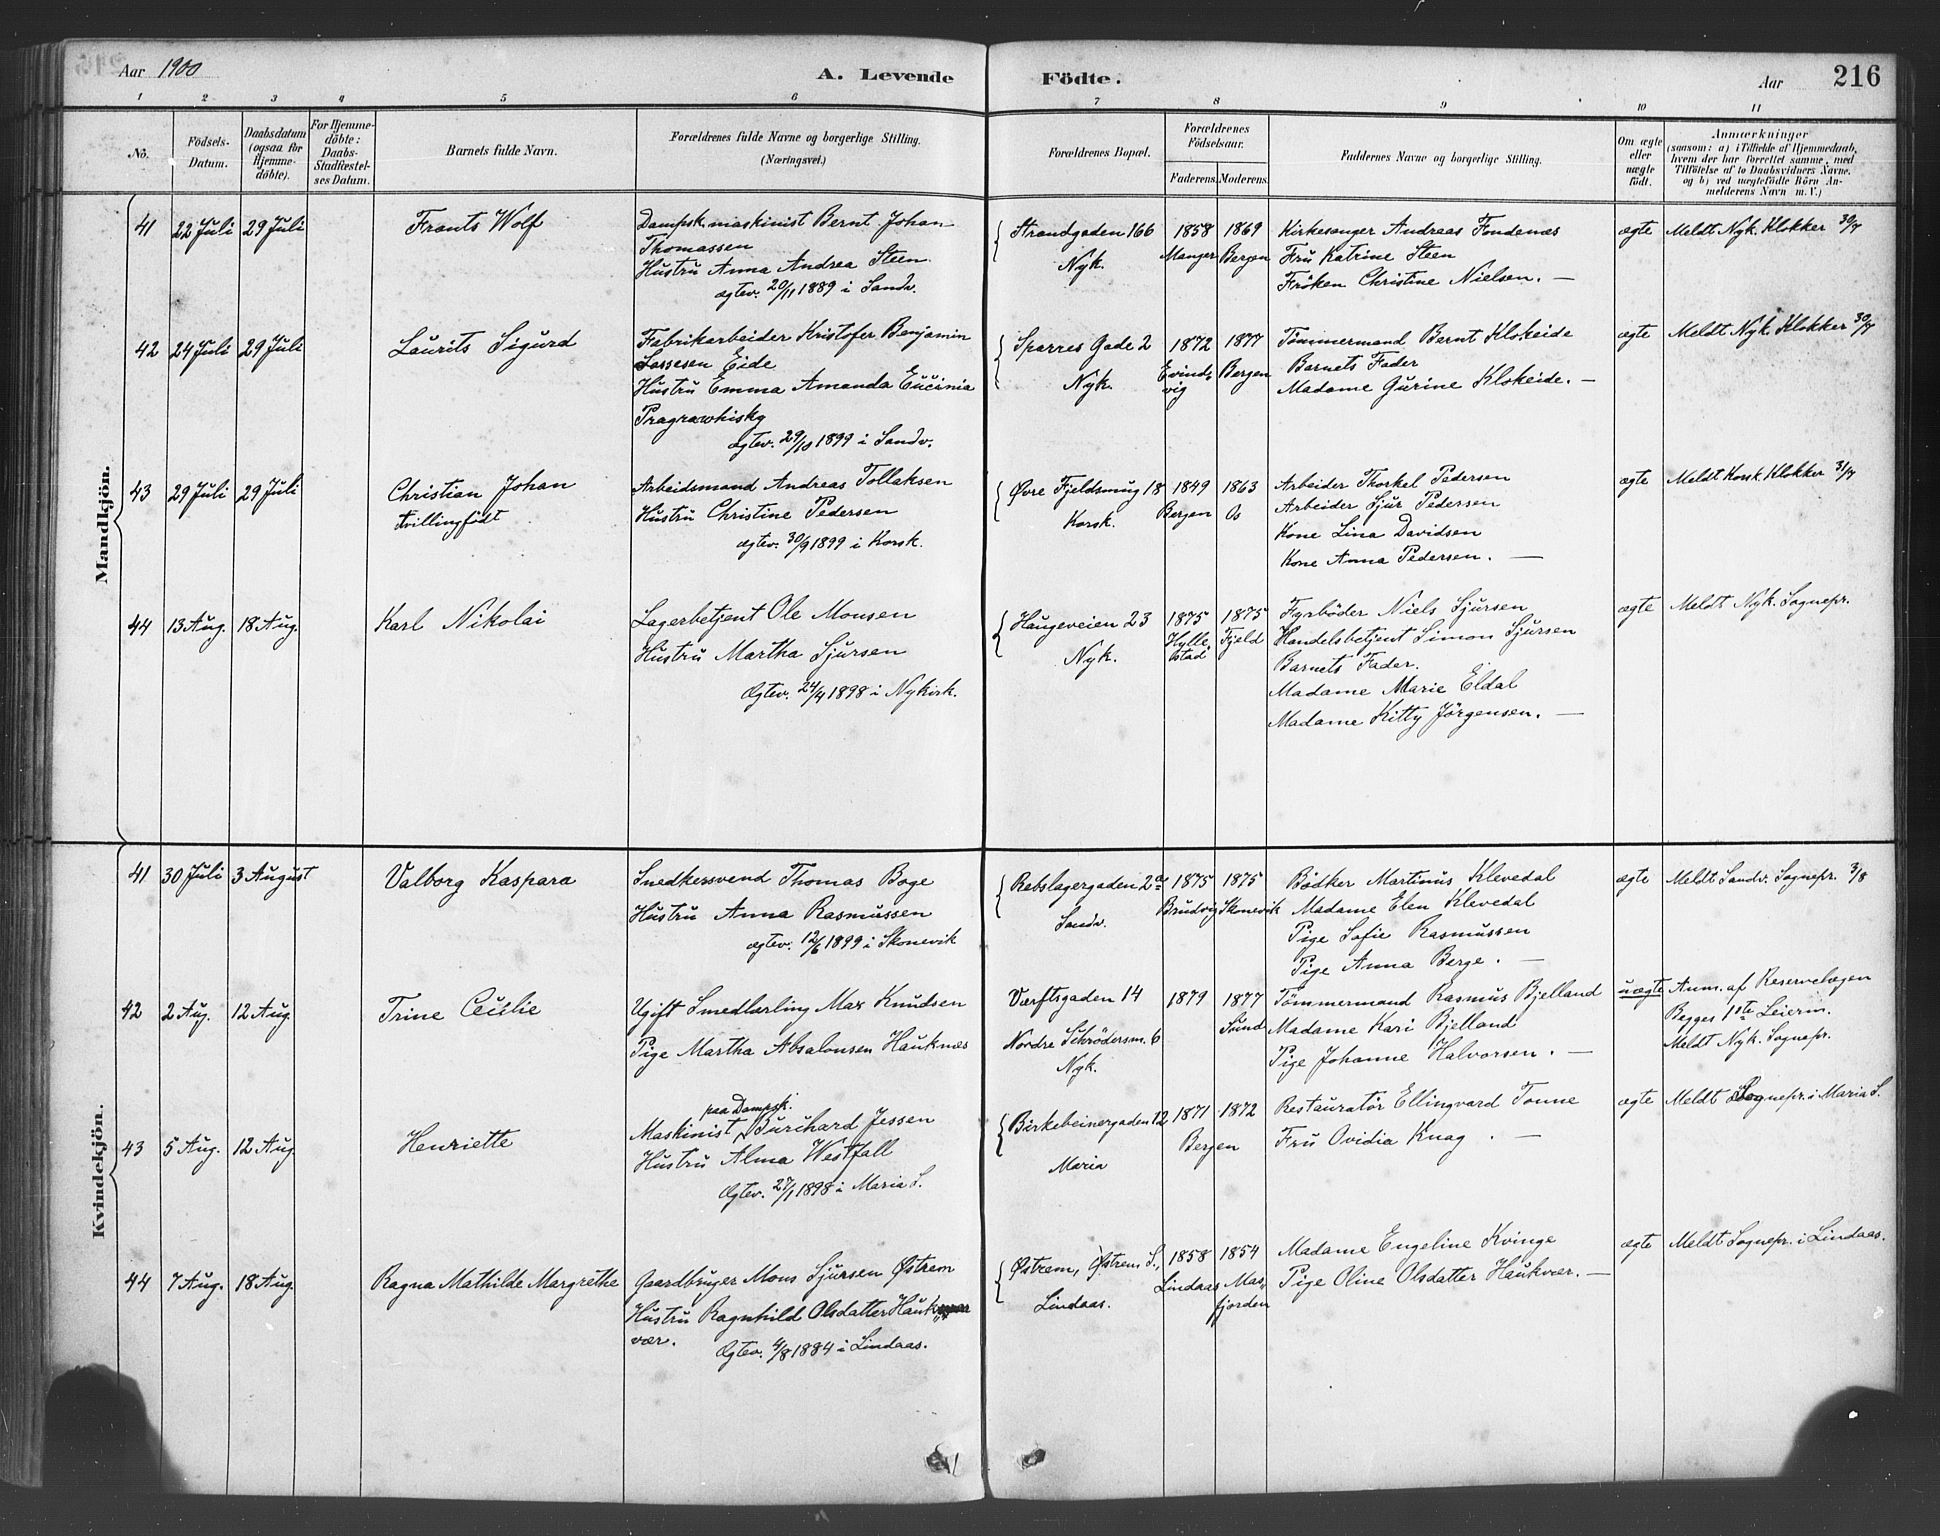 Aar 1900
A. Levende
Födte.
Aar
216
1 2 3 4 5 6 7 8 9 10 11
No.
Födsels-
Datum.
Daabsdatum
(ogsaa for
Hjemme-
döbte).
For Hjemme-
döbte:
Daabs-
Stadfæstel-
ses Datum.
Barnets fulde Navn.
Forældrenes fulde Navne og borgerlige Stilling.
(Næringsvei.)
Forældrenes Bopæl.
Forældrenes
Födselsaar.
Faderens. Moderens.
Faddernes Navne og borgerlige Stilling.
Om ægte
eller
uægte
födt.
Anmærkninger
(saasom: a) i Tilfælde af Hjemmedaab,
hvem der har forrettet samme, med
Tilföielse af to Daabsvidners Navne,
og b) ved uægtefödte Börn An-
melderens Navn m. V.)
Mandkjön.
41 22 Juli 29 Juli
Frants Wolf
Dampsk.maskinist Bernt Johan
Thomassen
Hustru Anna Andrea Steen
ægtev. 20/11 1889 i Sandv.
Strandgaden 166
Nyk.
1858
Manger
1869
Bergen
Kirkesanger Andreas Fondenæs
Fru Katrine Steen
Fröken Christine Nielsen. —
ægte
Meldt Nyk. Klokker 30/7
42 24 Juli 29 Juli
Laurits Sigurd
Fabrikarbeider Kristofer Benjamin
Lassesen Eide
Hustru Emma Amanda
Pragrawhisky
ægtev. 29/10 1899 i Sandv.
Sparres Gade 2
Nyk.
1872
Evind-
vig
1877
Bergen
Tömmermand Bernt Klokeide
Barnets Fader
Madame Gurine Klokeide. —
ægte
Meldt Nyk. Klokker 30/7
43 29 Juli 29 Juli
Christian Johan
tvillingfödt
Arbeidsmand Andreas Tollaksen
Hustru Christine Pedersen
ægtev. 30/9 1899 i Korsk.
Øvre Fjeldsmug 18
Korsk.
1849
Bergen
1863
Os
Arbeider Thorkel Pedersen
Arbeider Sjur Pedersen
Kone Lina Davidsen
Kone Anna Pedersen. —
ægte
Meldt Korsk. Klokker 31/7
44 13 Aug. 18 Aug.
Karl Nikolai
Lagerbetjent Ole Monsen
Hustru Martha Sjursen
Ægtev. 24/4 1898 i Nykirk.
Haugeveien 23
Nyk.
1875
Hylle-
stad
1875
Fjeld
Fyrböder Niels Sjursen
Handelsbetjent Simon Sjursen
Barnets Fader.
Madame Marie Eldal
Madame Kitty Jörgensen. —
ægte
Meldt Nyk. Sognepr.
Kvindekjön.
41 30 Juli 3 August
Valborg Kaspara
Snedkersvend Thomas Boge
Hustru Anna Rasmussen
ægtev. 12/6 1899 i Skonevik
Rebslagergaden 2a
Sandv.
1875
Brudvig
1875
Skonevik
Bödker Martinus Klevedal
Madame Elen Klevedal
Pige Sofie Rasmussen
Pige Anna Berge. —
ægte
Meldt Sandv. Sognepr. 3/8
42 2 Aug. 12 Aug.
Trine Cecilie
Ugift Smedlærling Max Knudsen
Pige Martha Absalonsen Hauknæs
Værftsgaden 14
Nordre Schrödersm. 6
Nyk.
1879
1877
Sund
Tömmermand Rasmus Bjelland
Madame Kari Bjelland
Pige Johanne Halvorsen. —
uægte
Anm. af Reservelægen
Begges 1ste Leierm.
Meldt Nyk. Sognepr.
43 5 Aug. 12 Aug.
Henriette
paa Dampsk.
Maskinist Burchard Jessen
Hustru Alma Westfall
Ægtev. 27/1 1898 i Maria S.
Birkebeinergaden 12
Maria
1871 1872
Bergen
Restauratör Ellingvard Tonne
Fru Ovidia Knag. —
ægte
Meldt Sognepr. i Maria S.
44 7 Aug. 18 Aug.
Ragna Mathilde Margrethe
Gaardbruger Mons Sjursen Østrem
Hustru Ragnhild Olsdatter Hauk-
vær.
Ægtev. 4/8 1884 i Lindaas.
Østrem, Østrem S.,
Lindaas.
1858
Lindaas
1854
Mas-
fjorden
Madame Engeline Kvinge
Pige Oline Olsdatter Haukvær. —
ægte
Meldt Sognepr. i Lindaas.